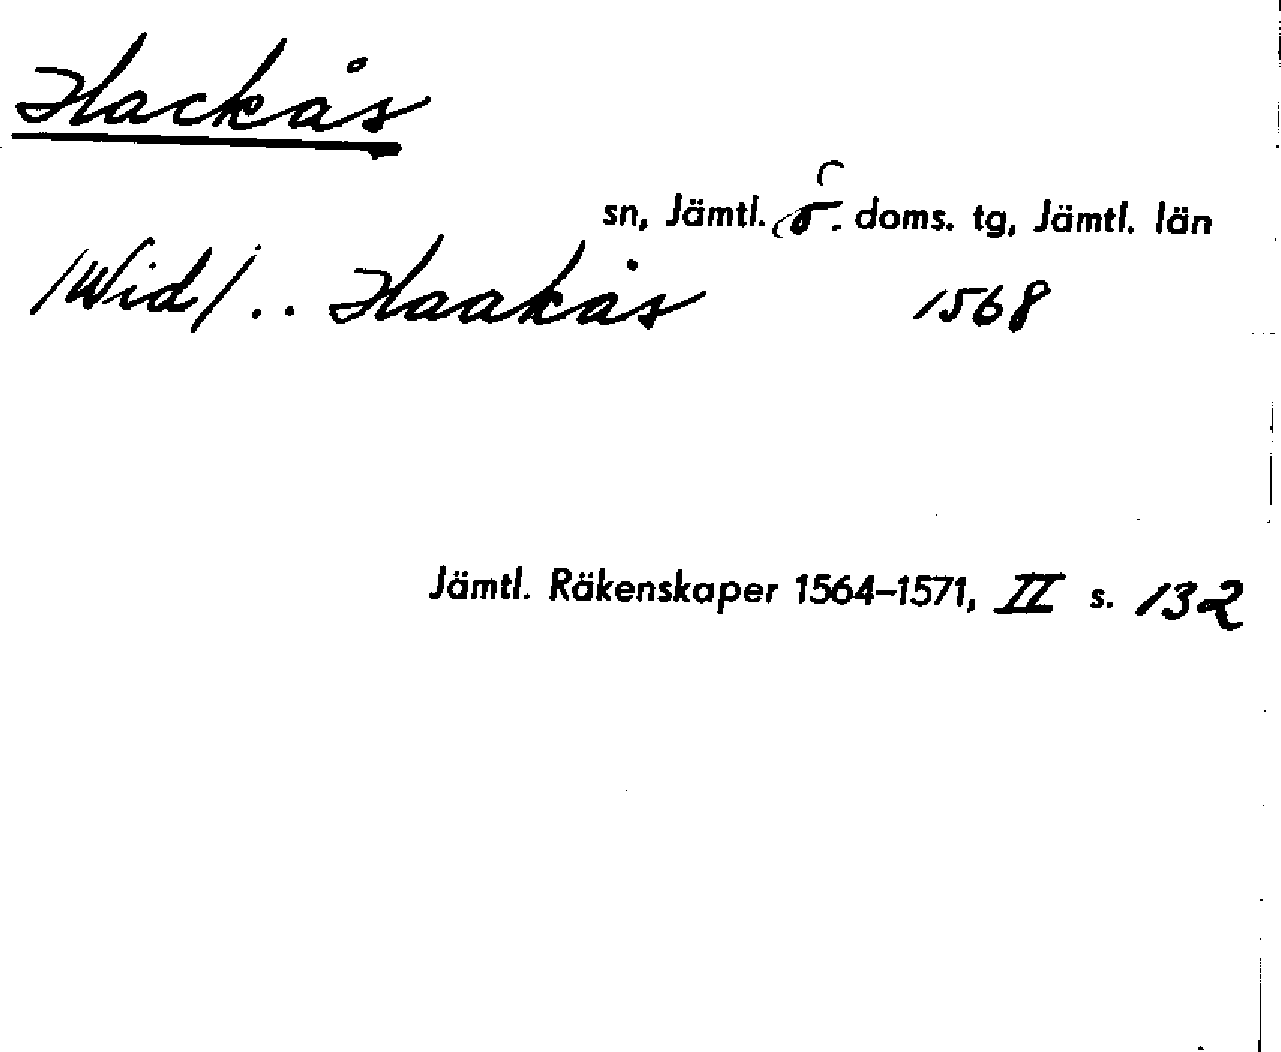 Hackås
sn, Jämtl. ö. doms. tg, Jämtl. län
/Wid/ .. Haakås 1568
Jämtl. Räkenskaper 1564–1571, II s. 132